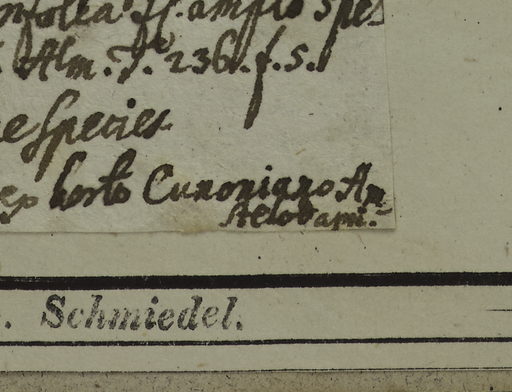 fl. amplo spe
Alm. T. 236. f. 5.
Species
ex horto Cunoniano Am
stelodami.
. Schmiedel.